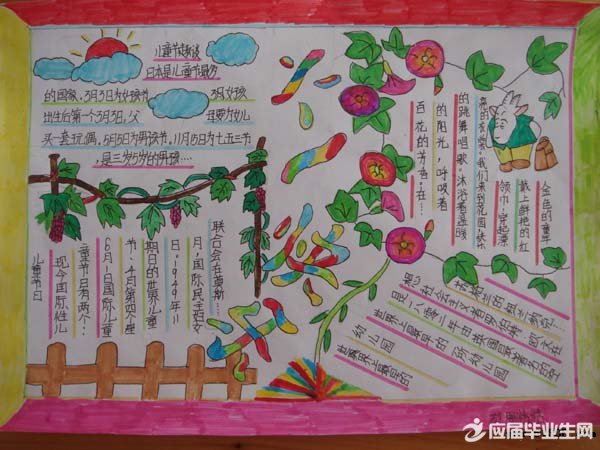 儿童节趣谈
日本是儿童节最多
的国家，3月3日为女孩节
3岁女孩
出生后第一个3月3日，父
母要为幼儿
买一套玩偶，5月5日为男孩节，11月15日为七五三节
，是三岁5岁的男孩……
儿童节日
现今国际性儿
童节只有两个：
6月1日国际儿童
节，4月第四个星
期日的世界儿童
日。1949年11
月，国际民主妇女
联合会在莫斯……
金色的童年
戴上鲜艳的红
领巾，穿起漂
亮的衣裳，我们来到花园，快乐
的跳舞唱歌，沐浴着温暖
的阳光，呼吸着
百花的芳香，在……
世界上最早的
幼儿园
世界上最早的一所幼儿园
应届毕业生网
YJBYS.COM